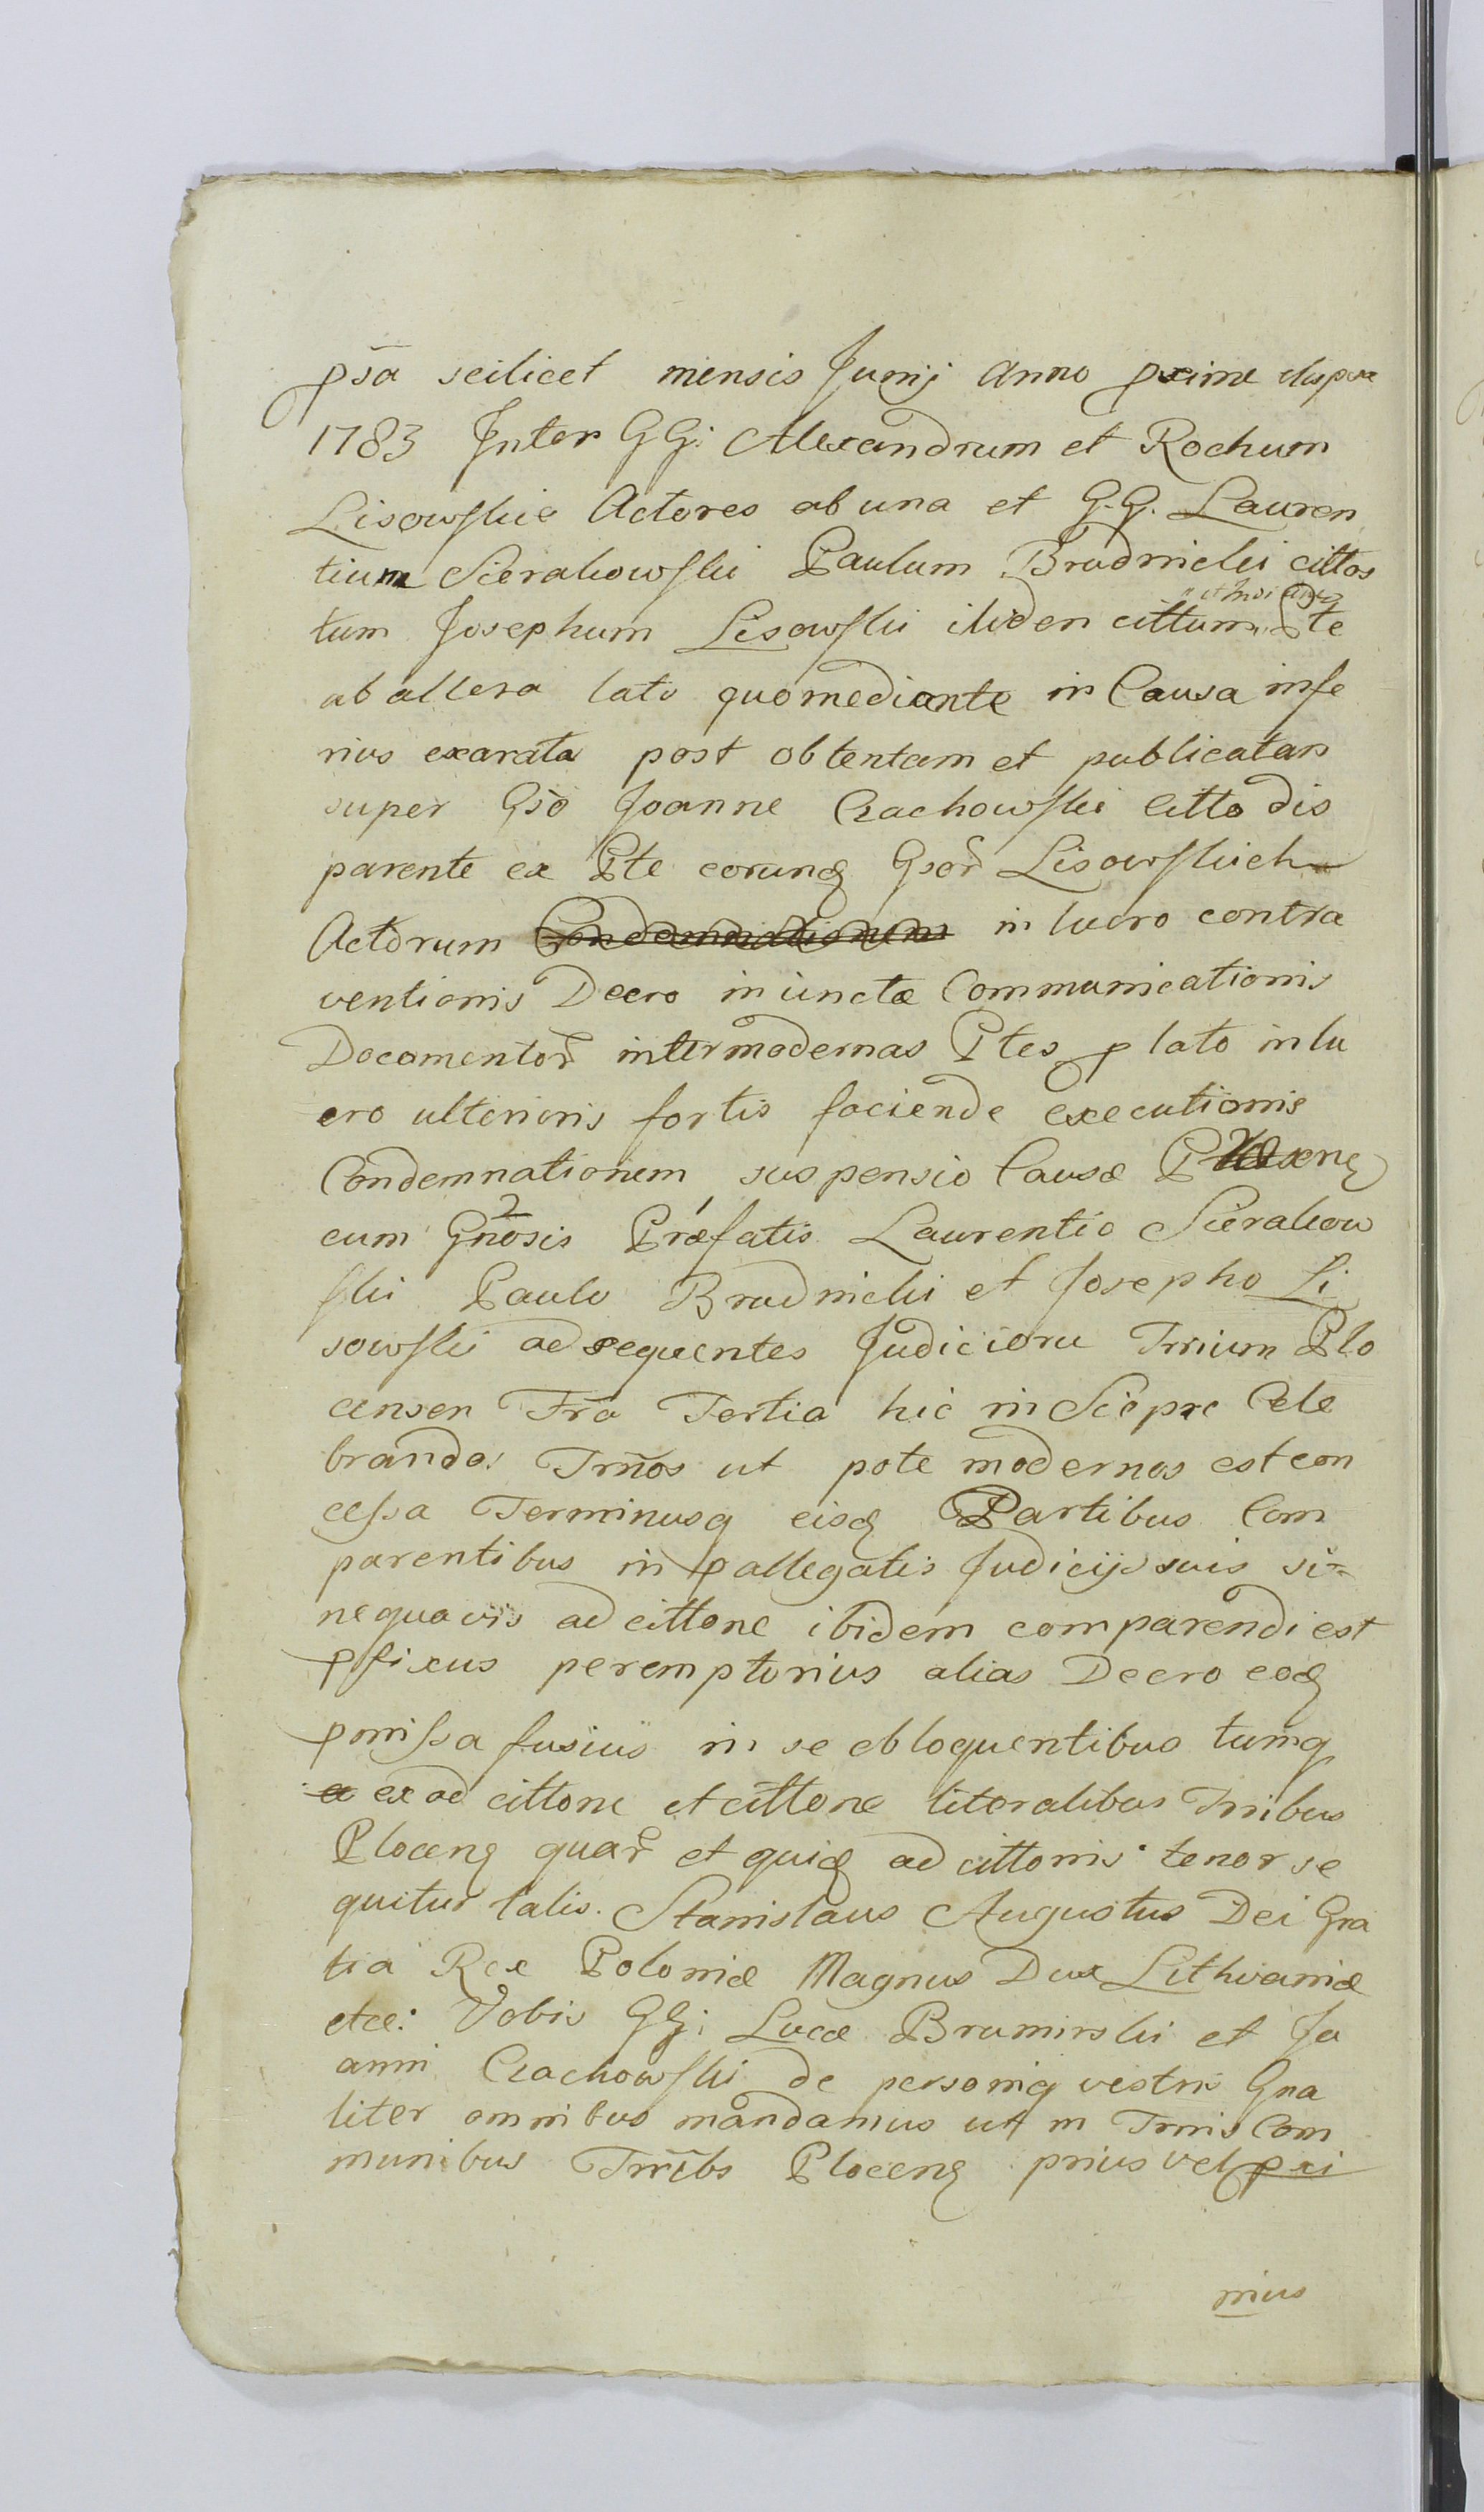 psã scilicet mensis Junij anno pxime
1783 Inter GG: Alexandrum et Rochum
Lisowskie Actores ab una et G.G. Lauren
tium Sierakowski Paulum Brudnicki cittos
tum Josephum Lisowski itiden cittum Pte
ab altera lato quomediante in Causa infe
rius exarata post obtentam et publicatam
super Gsõ Joanne Czachowski citto dis
parente ex Pte eorundq Gsor Lisowskich
Actorum Condemnationem in lucro contra
ventionis Decro iniunctæ Communicationis
Documentor inter modernas Ptes p lato in lu
cro ulterioris fortis faciende executionis
Condemnationem, suspensio Causæ
cum Gnosis Præfatis Laurentio Sierakow
ski Paulo Brudnicki et Josepho Li
sowski ad sequentes Judicioru Trrium Plo
censen Fra Tertia hic in Sieprc Cele
brandos Trmños ut pote modernos est con
cessa Terminusq eisdq Partibus Com
parentibus in pallegatis Judicijs suis si=
nequavis adcittone ibidem comparendi est
pfixus peremptorius alias Decro eodq
pmissa fusius in se obloquentibus tumq
a ex adcittone et cittone literalibus Trribus
Plocenq quar et quidq adcittonis tenor se
quitur talis. Stanislaus Augustus Dei Gra
tia Rex Poloniæ Magnus Dux Lithvaniæ
etcc: Vobis GG: Lucæ Brumirski et Jo
anni Czachowski de personisq vestris Gna
liter omnibus mandamus ut in Trmis Com
munibus Trrĩbs Plocenq prius vel pxi
mus